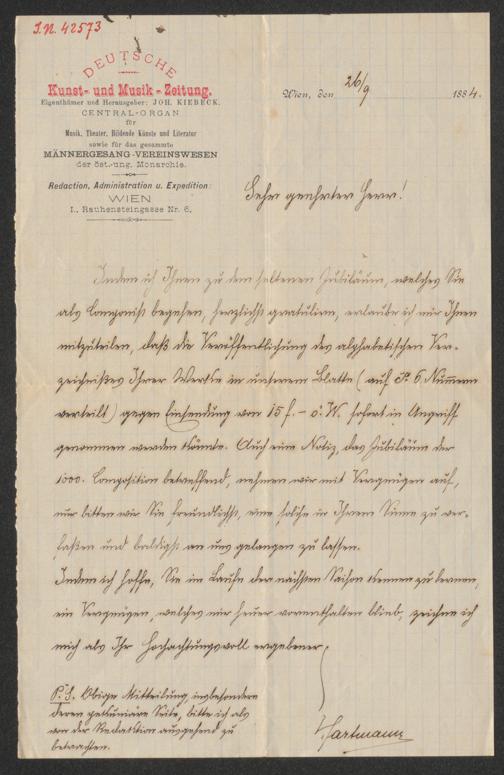 I.N. 42573
DEUTSCHE
Kunst- und Musik-Zeitung.
Eigenthümer und Herausgeber: JOH. KIEBECK.
CENTRAL-ORGAN
für
Musik, Theater, Bildende Künste und Literatur
sowie für das gesammte
MÄNNERGESANG-VEREINSWESEN
der öst.-ung. Monarchie.
Redaction, Administration u. Expedition:
WIEN
I., Rauhensteingasse Nr. 6.
Wien, den 26/9 1884.
Sehr geehrter Herr!
Indem ich Ihnen zu dem seltenen Jubiläum, welches Sie
als Componist begehen, herzlichst gratulire, erlaube ich mir Ihnen
mitzuteilen, daß die Veröffentlichung des alphabetischen Ver-
zeichnißes Ihrer Werke in unserem Blatte (auf 6 Nummern
verteilt) gegen Einsendung von 15 f. – ö. W. sofort in Angriff
genommen werden könnte. Auch eine Notiz, das Jubiläum der
1000. Composition betreffend, nehmen wir mit Vergnügen auf,
nur bitten wir Sie freundlichst, eine solche in Ihrem Sinne zu ver-
faßen und baldigst an uns gelangen zu lassen.
Indem ich hoffe, Sie im Laufe der nächsten Saison kennen zu lernen,
ein Vergnügen, welches mir heuer vorenthalten blieb, zeichne ich
mich als Ihr Hochachtungsvoll ergebener
Hartmann
P.S. Obige Mitteilung, insbesondere
deren pekuniäre Seite, bitte ich als
von der Redaktion ausgehend zu
betrachten.